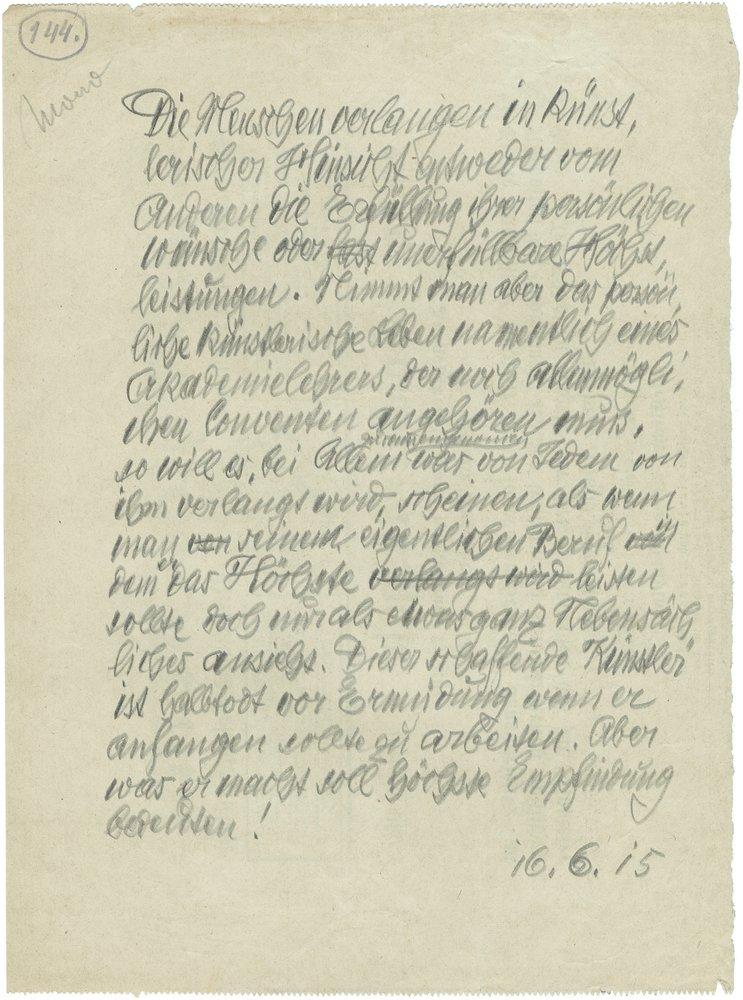 144.
Die Menschen verlangen in künst,
lerischer Hinsicht entweder vom
Anderen die Erfüllung ihrer persönlichen
wünsche oder fast unerfüllbare Höchst,
leistungen. Nimmt man aber das persön,
liche künstlerische Leben namentlich eines
Akademielehrers, der noch allenmögli,
chen Conventen angehören muss,
zusammengenommen
so will es, bei Allem was von Jedem von
ihm verlangt wird, scheinen, als wenn
man von seinem eigentlichen Beruf
dem das Höchste verlangt wird leisten
sollte doch nur als etwas ganz Nebensäch
liches ansieht. Dieser schaffende "Künstler"
ist halbtodt vor Ermüdung wenn er
anfangen sollte zu arbeiten. Aber
was er macht soll höchste Empfindung
bedeuten!
16.6.15